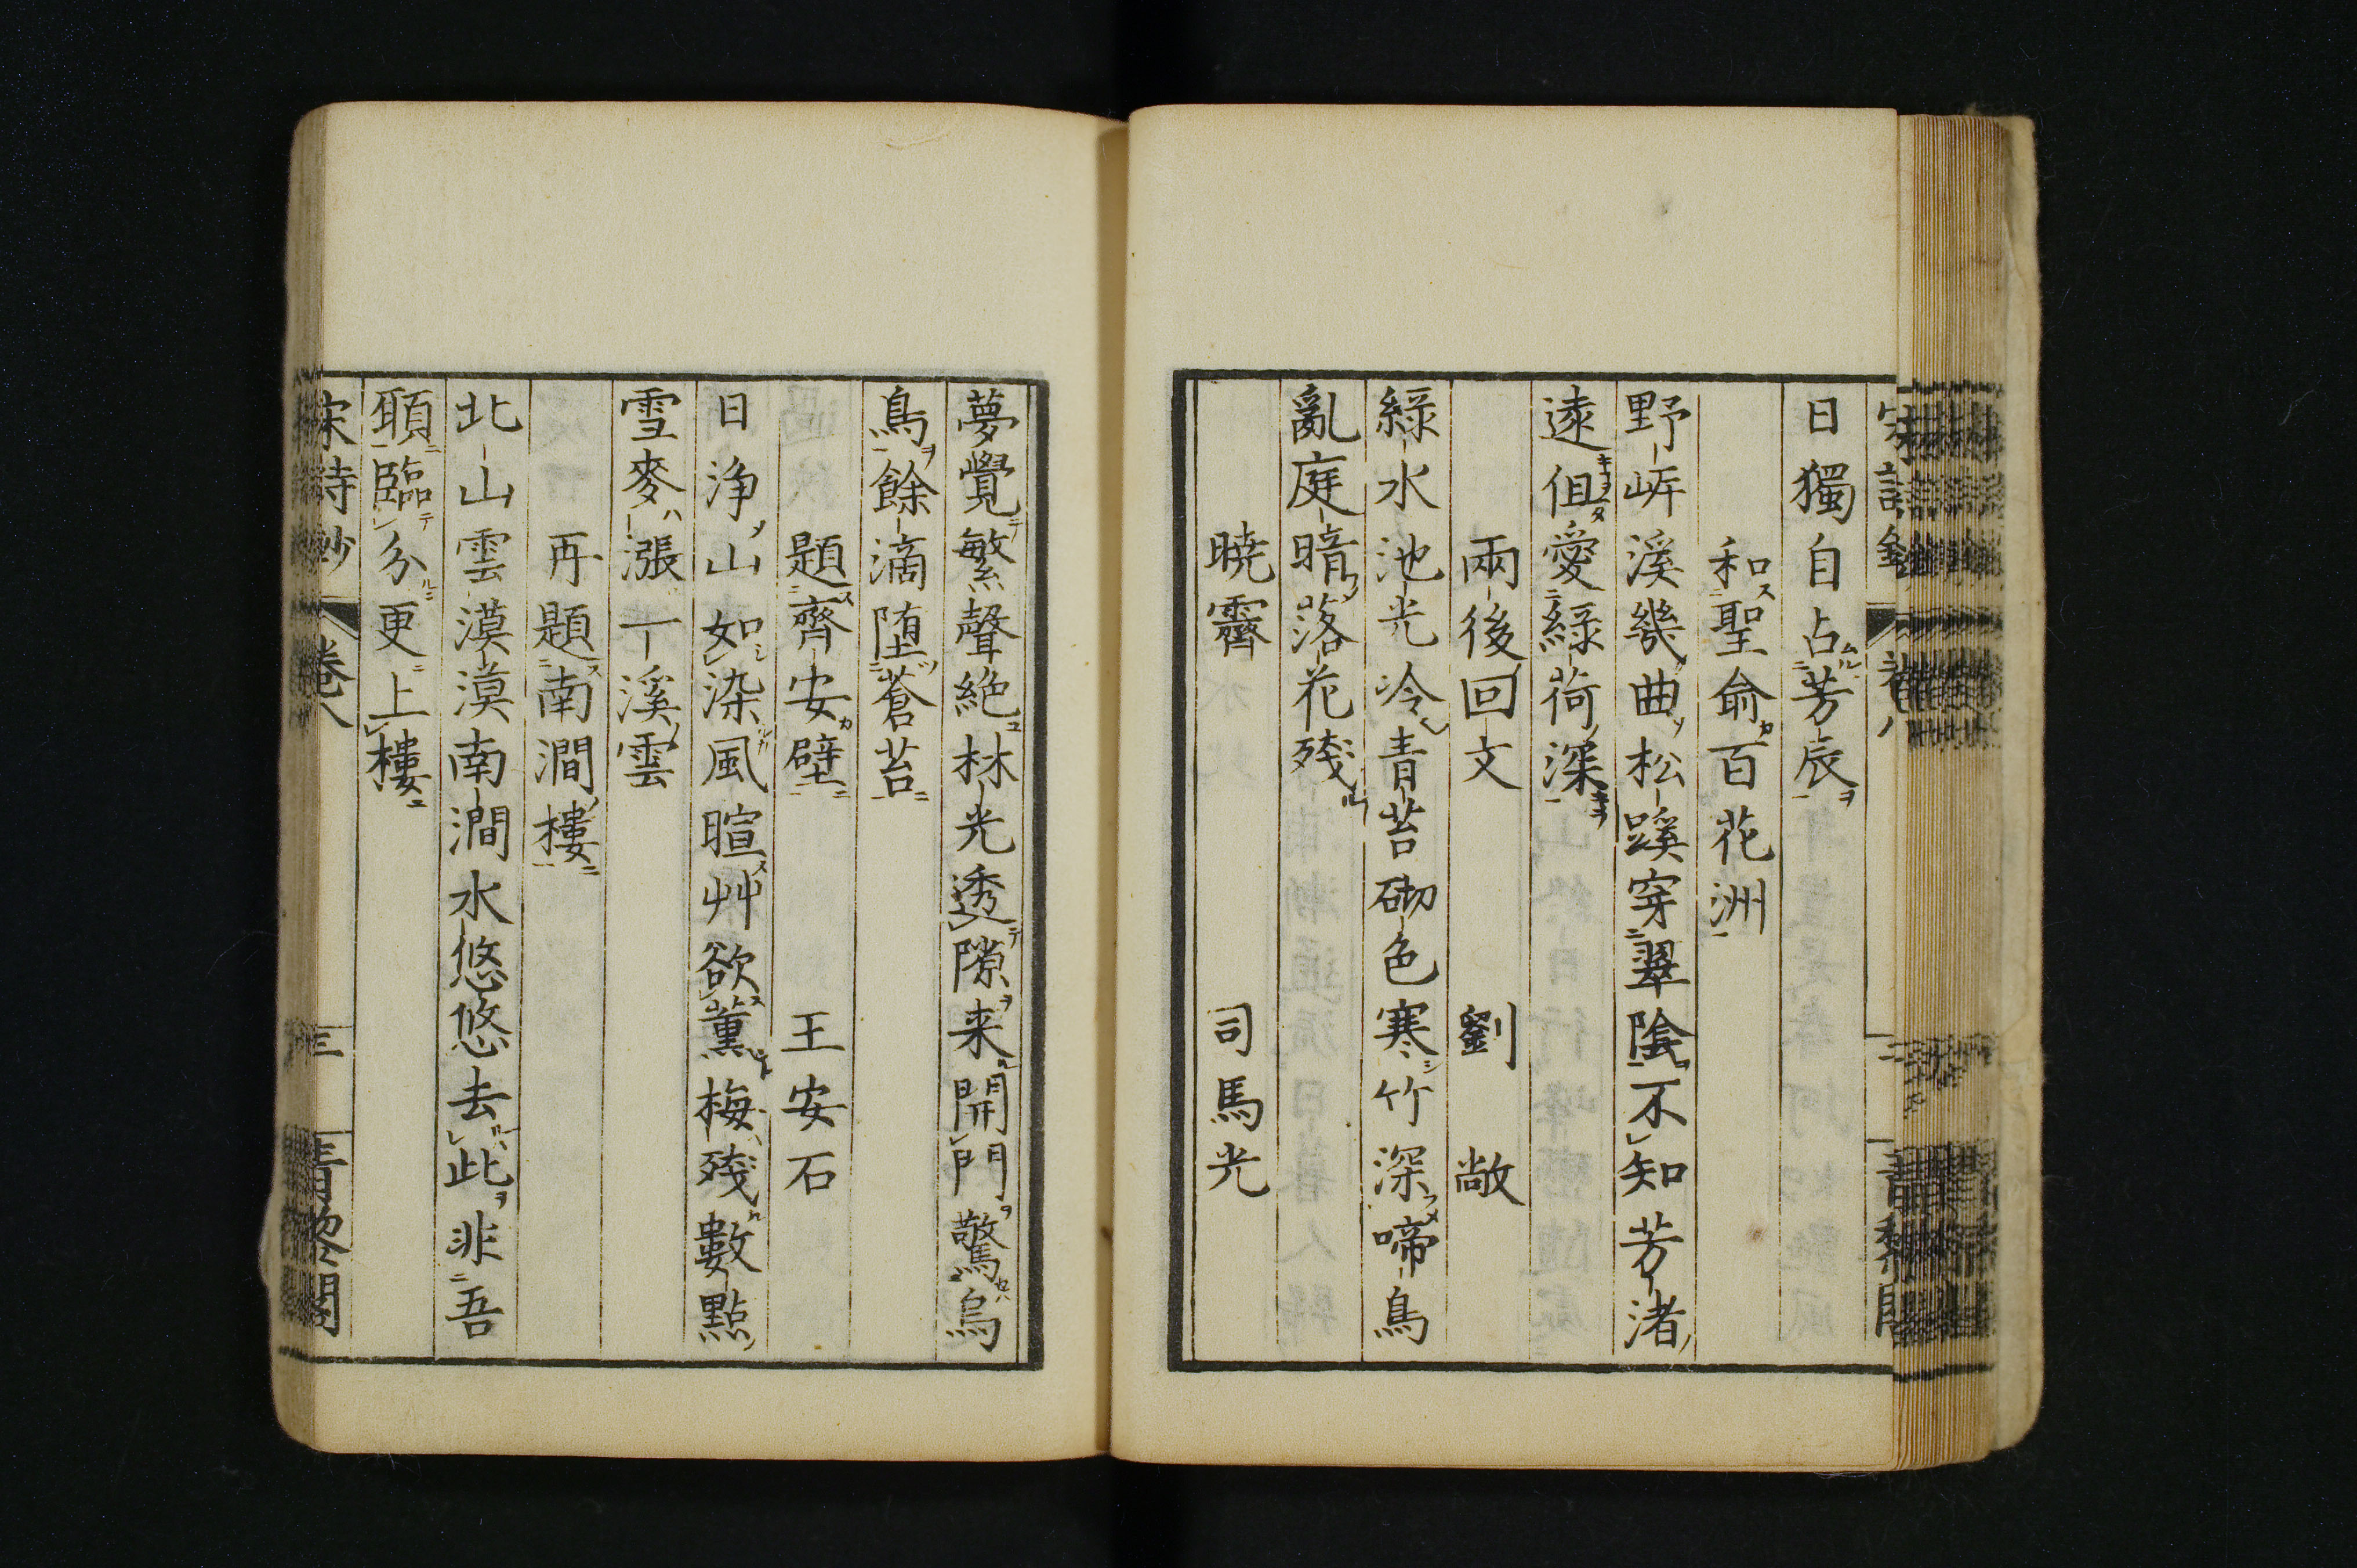 日獨自占芳辰
和聖俞百花洲
野岍溪幾曲松蹊穿翠陰不知芳渚
遠但愛綠荷深
兩後回文 劉敞
綠水池光冷青苔砌色寒竹深啼鳥
亂庭暗落花殘
曉霽 司馬光
夢覺繁聲絶林光透隙来開門驚烏
鳥餘滴堕蒼苔
題齊安壁 王安石
日浄山如染風暄艸欲薫梅殘數點
雪麥漲一溪雲
再題南澗樓
北山雲漠漠南澗水悠悠去此非吾
願臨分更上樓
宋詩鈔 卷八 三 青黎閣